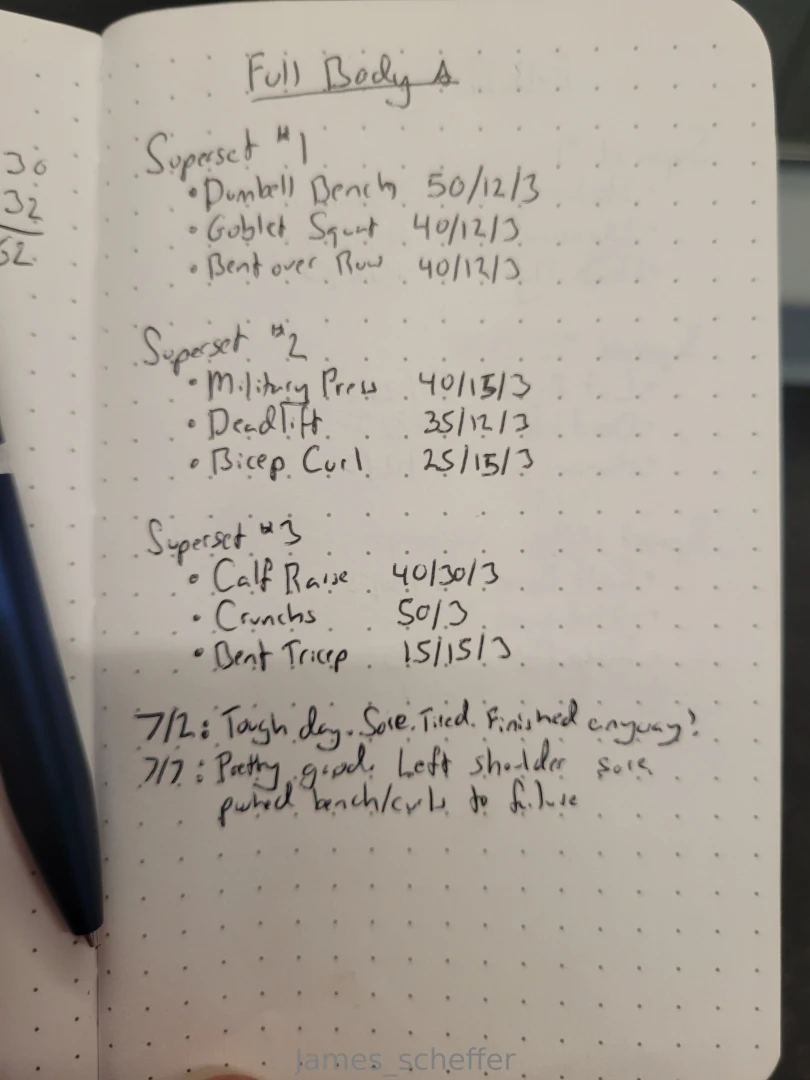 Full Body A
Superset #1
• Dumbell Bench 50/12/3
• Goblet Squat 40/12/3
• Bent over Row 40/12/3
Superset #2
• Military Press 40/15/3
• Deadlift 35/12/3
• Bicep Curl 25/15/3
Superset #3
• Calf Raise 40/30/3
• Crunchs 50/3
• Bent Tricep 15/15/3
7/2: Tough day. Sore. Tired. Finished anyway!
7/7: Pretty good. Left shoulder sore
pushed bench/curls to failure
30
32
52
James_scheffer